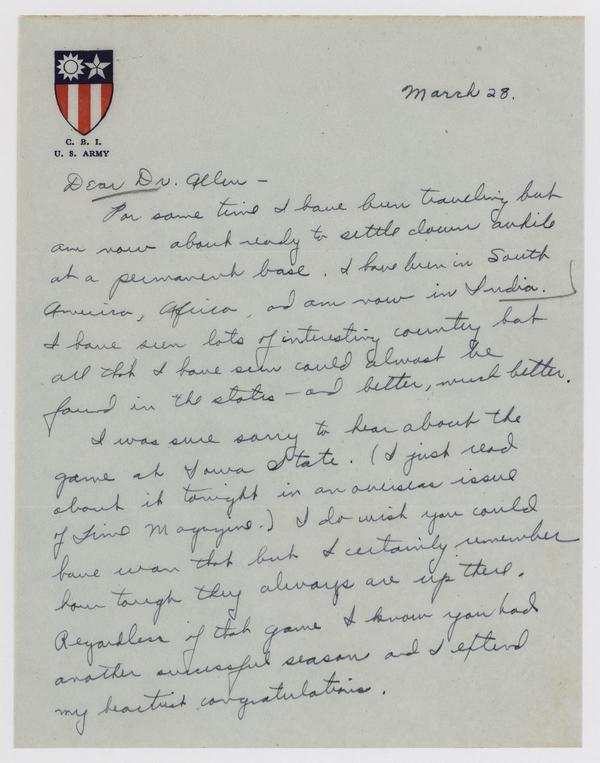 C. B. I.
U. S. ARMY
March 28.
Dear Dr. Allen —
For some time I have been traveling but
am now about ready to settle down awhile
at a permanent base. I have been in South
America, Africa, and am now in India.
I have seen lots of interesting country but
all that I have seen could almost be
found in the states — and better, much better.
I was sure sorry to hear about the
game at Iowa State. (I just read
about it tonight in an overseas issue
of Time Magazine.) I do wish you could
have won that but I certainly remember
how tough they always are up there.
Regardless of that game I know you had
another successful season and I extend
my heartiest congratulations.